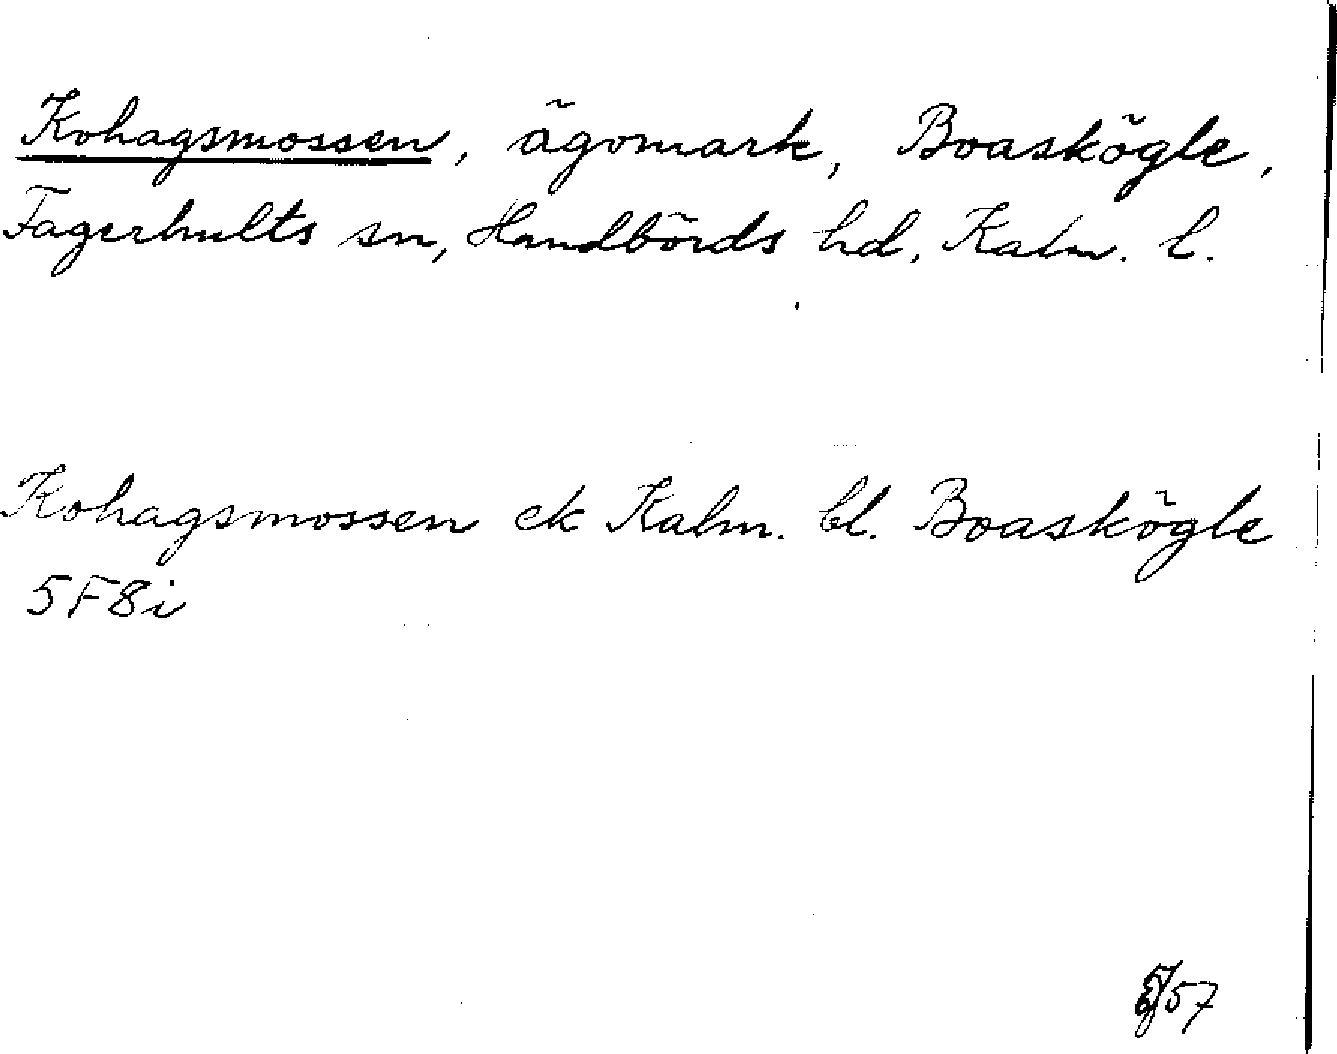 Kohagsmossen, ägomark, Boaskögle,
Fagerhults sn, Handbörds hd, Kalm. l.
Kohagsmossen ek Kalm. bl. Boaskögle
5F8i
57